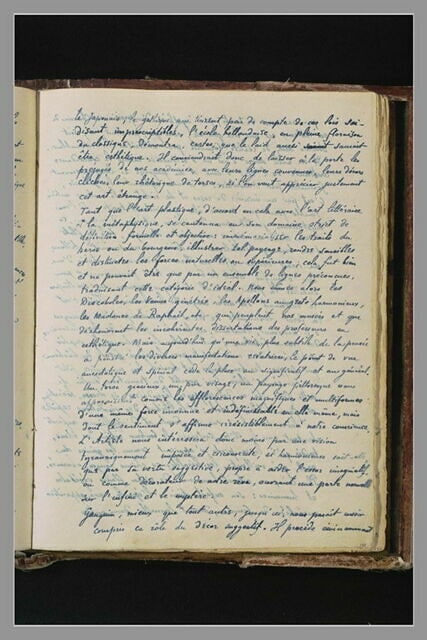 le Japonais, le gothique qui tinrent peu de compte de ces lois soi-
disant imprescriptibles, l'école hollandaise, en pleine floraison
du classique, démontra, certes, que le laid aussi saurait
être esthétique. Il conviendrait donc de laisser à la porte les
préjugés de nos académies, avec leurs lignes convenues, leurs décors
clichés, leur rhétorique de torses, si l'on veut apprécier justement
cet art étrange.
Tant que l'art plastique, d'accord en cela avec l'art littéraire
et la métaphysique, se cantonna en son domaine étroit de
définition formelle et objective: commémorer les traits du
héros ou du bourgeois, illustrer tel paysage, rendre sensibles
et distinctes les forces naturelles, ou supérieures, cela fut bien
et ne pouvait être que par un ensemble de lignes préconçues,
traduisant cette catégorie d'idéal. Nous eûmes alors les
Discoboles, les Vénus génitrix, les Apollons aux gestes harmonieux,
les Madones de Raphaël, etc. qui peuplent nos musées et que
déshonorent les incohérentes dissertations des professeurs en
esthétique. Mais aujourd'hui qu'une vie plus subtile de la pensée
a pénétré les diverses manifestations créatrices, le point de vue
anecdotique et spécial cède la place au significatif et au général.
Un torse gracieux, un pur visage, un paysage pittoresque nous
apparaissent comme les efflorescences magnifiques et multiformes
d'une même force inconnue et indéfinissable en elle même, mais
dont le sentiment s'affirme irrésistiblement à notre conscience.
L'Artiste nous intéressera donc moins par une vision
tyranniquement imposée et circonscrite, si harmonieuse soit-elle
que par sa vertu suggestive, propre à aider l'essor imaginatif
ou comme décoratrice de notre rêve, ouvrant une porte nouvelle
sur l'infini et le mystère.
Gauguin, mieux que tout autre, jusqu'ici, nous paraît avoir
compris ce rôle du décor suggestif. Il procède